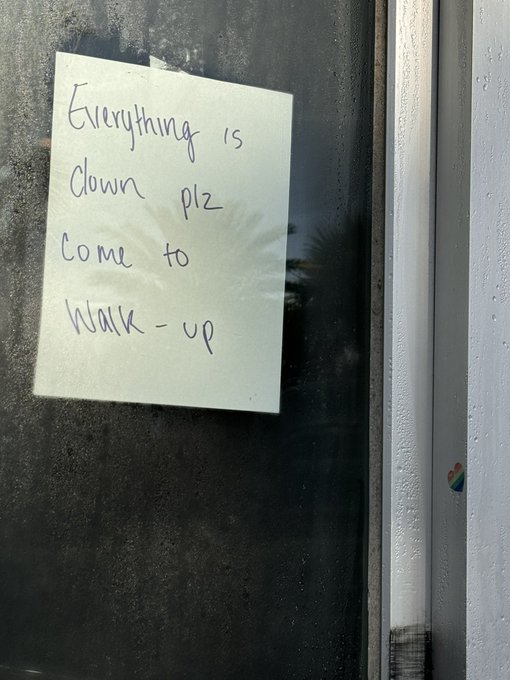 Everything is
down plz
come to
Walk-up